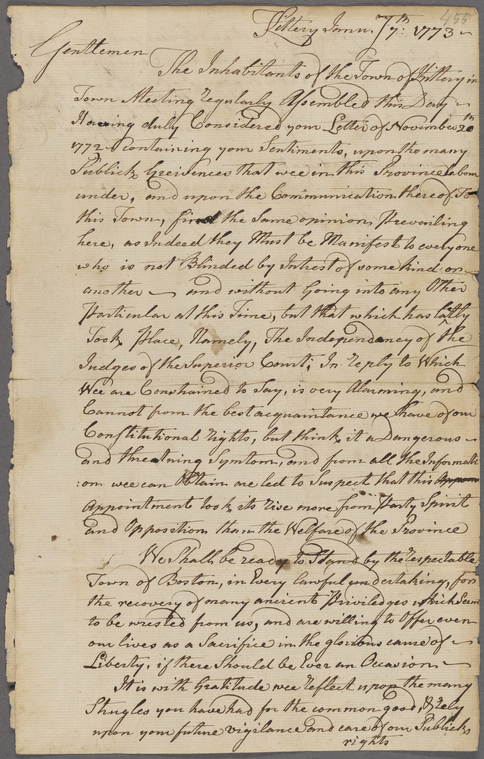 455
Kittery Janu. 7th: 1773
Gentlemen
The Inhabitants of the Town of Kittery in
Town Meeting regularly Assembled this Day
Having duly Considered your Letter of November 20th
1772 Containing your Sentiments, upon the many
Publick Greivences that wee in this Province labour
under, and upon the Communication thereof To
this Town, find the Same opinion Prevailing
here, as Indeed they Must be Manifest to every one
who is not Blinded by Intrest of some kind or
another — and without Going into any Other
Particular at this Time, but that which has latly
Took Place, Namely, The Independancy of the
Judges of the Superior Court; In reply to Which
Wee are Constrained to Say, is very Alarming, and
Cannot from the best acquaintance we have of our
Constitutional Rights, but think it a Dangerous
and threatning Symtom, and from all the Informati
:on wee can Obtain are led to Suspect that this
Appointment took its rise more from Party Spirit
and Opposition than the Welfare of the Province
We Shall be ready to Stand by the respectable
Town of Boston, in Every lawful undertaking, for
the recovery of many ancient Priviledges which Seem
to be wrested from us, and are willing to Offer even
our lives as a Sacrifice in the glorious cause of
Liberty, if there Should be Ever an Occasion
It is with Gratitude wee reflect upon the many
Strugles you have had for the common good, & rely
upon your future vigilance and care of our Publick
rights